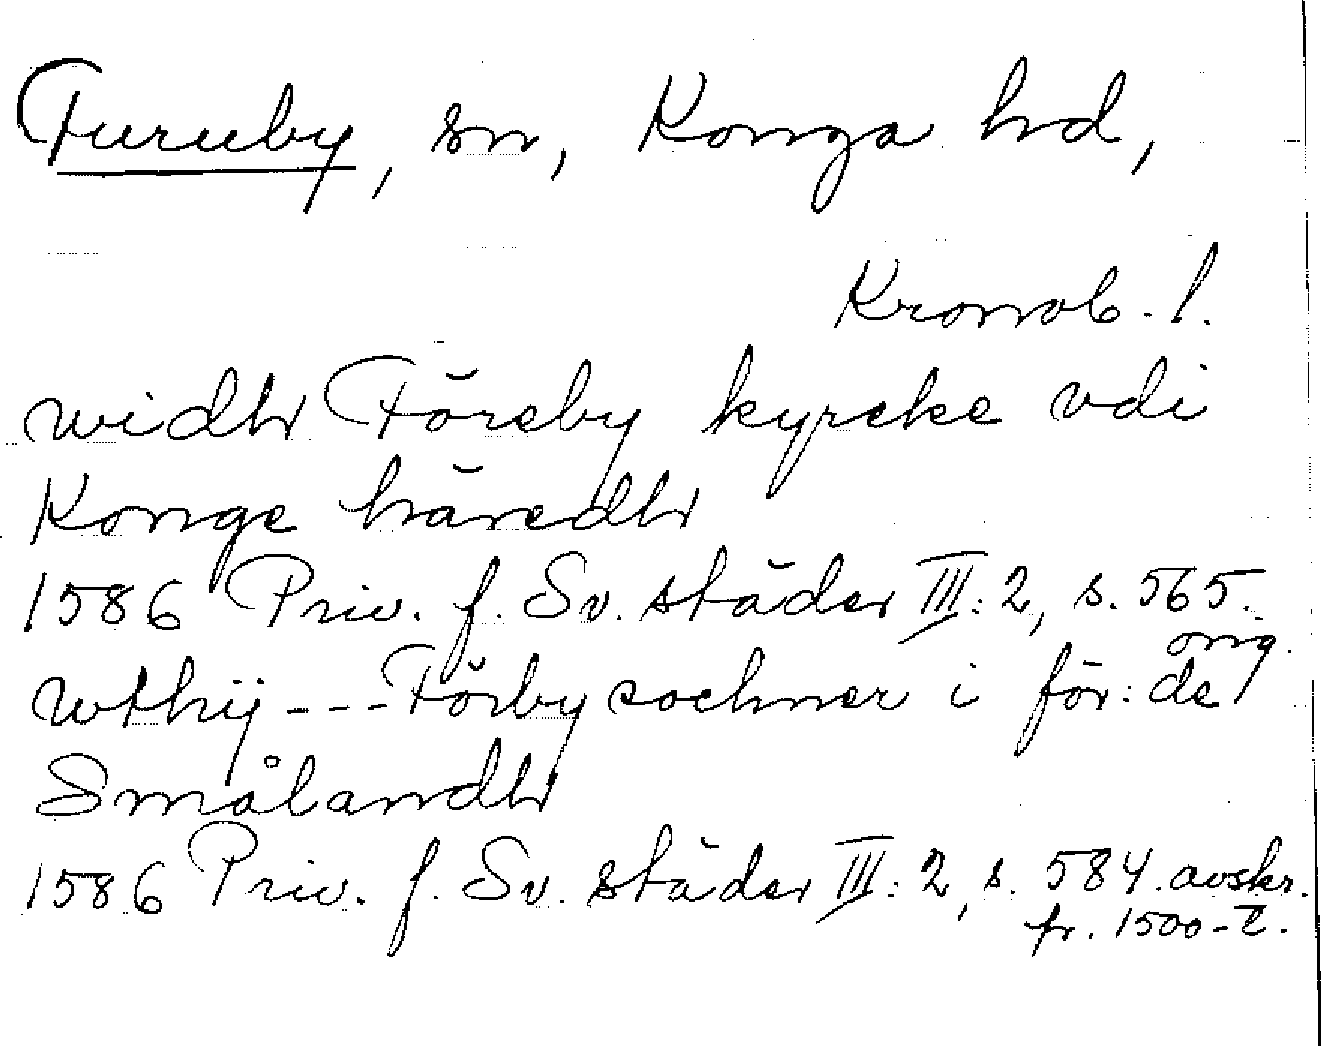 Furuby, sn, Konga hd,
Kronob. l.
widh Föreby kyrcke vdi
Konge häredh
1586 Priv. f. Sv. städer III: 2, s. 565.
orig.
wthij --- Förby sochner i för: de
Smålandh
1586 Priv. f. Sv. städer III: 2, s. 584. avskr.
fr. 1500-t.